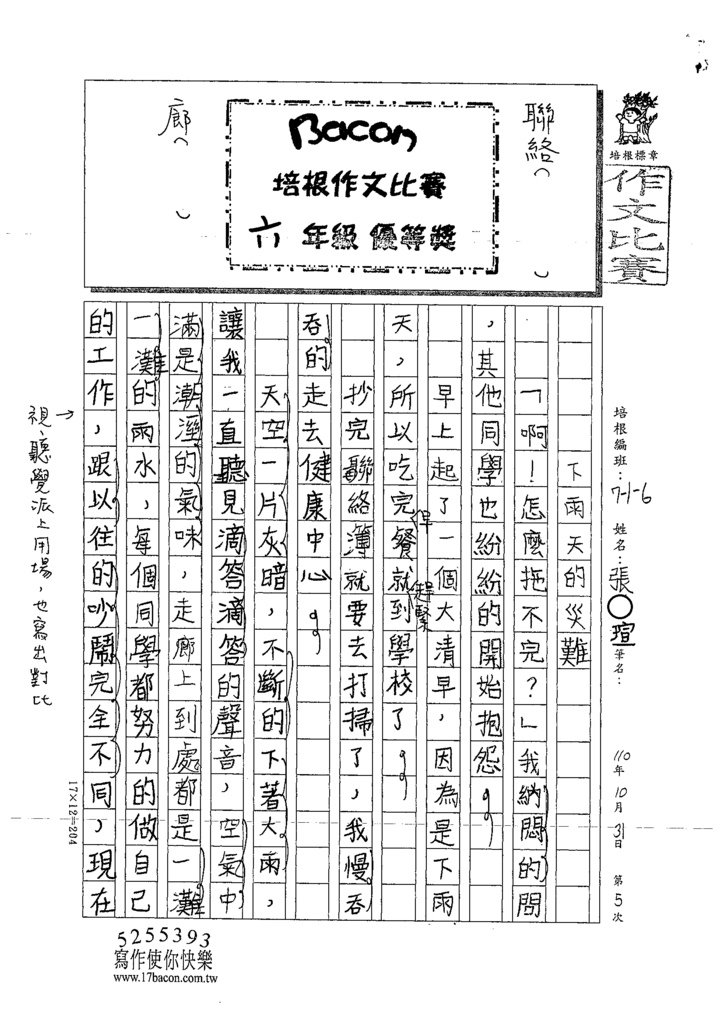 培根標章
作文比賽
聯絡( )
Bacon
培根作文比賽
六年級 優等獎
廊( )
培根編班：7-1-6 姓名：張○瑄 筆名： 110年10月31日 第5次
下雨天的災難
「啊！怎麼拖不完？」我納悶的問
，其他同學也紛紛的開始抱怨。
早上起了一個大清早，因為是下雨
天，所以吃完早餐就趕緊到學校了。
抄完聯絡簿就要去打掃了，我慢吞
吞的走去健康中心。
天空一片灰暗，不斷的下著大雨，
讓我一直聽見滴答滴答的聲音，空氣中
滿是潮溼的氣味，走廊上到處都是一灘
一灘的雨水，每個同學都努力的做自己
的工作，跟以往的吵鬧完全不同，現在
17×12=204
視、聽覺派上用場，也寫出對比
5255393
寫作使你快樂
www.17bacon.com.tw